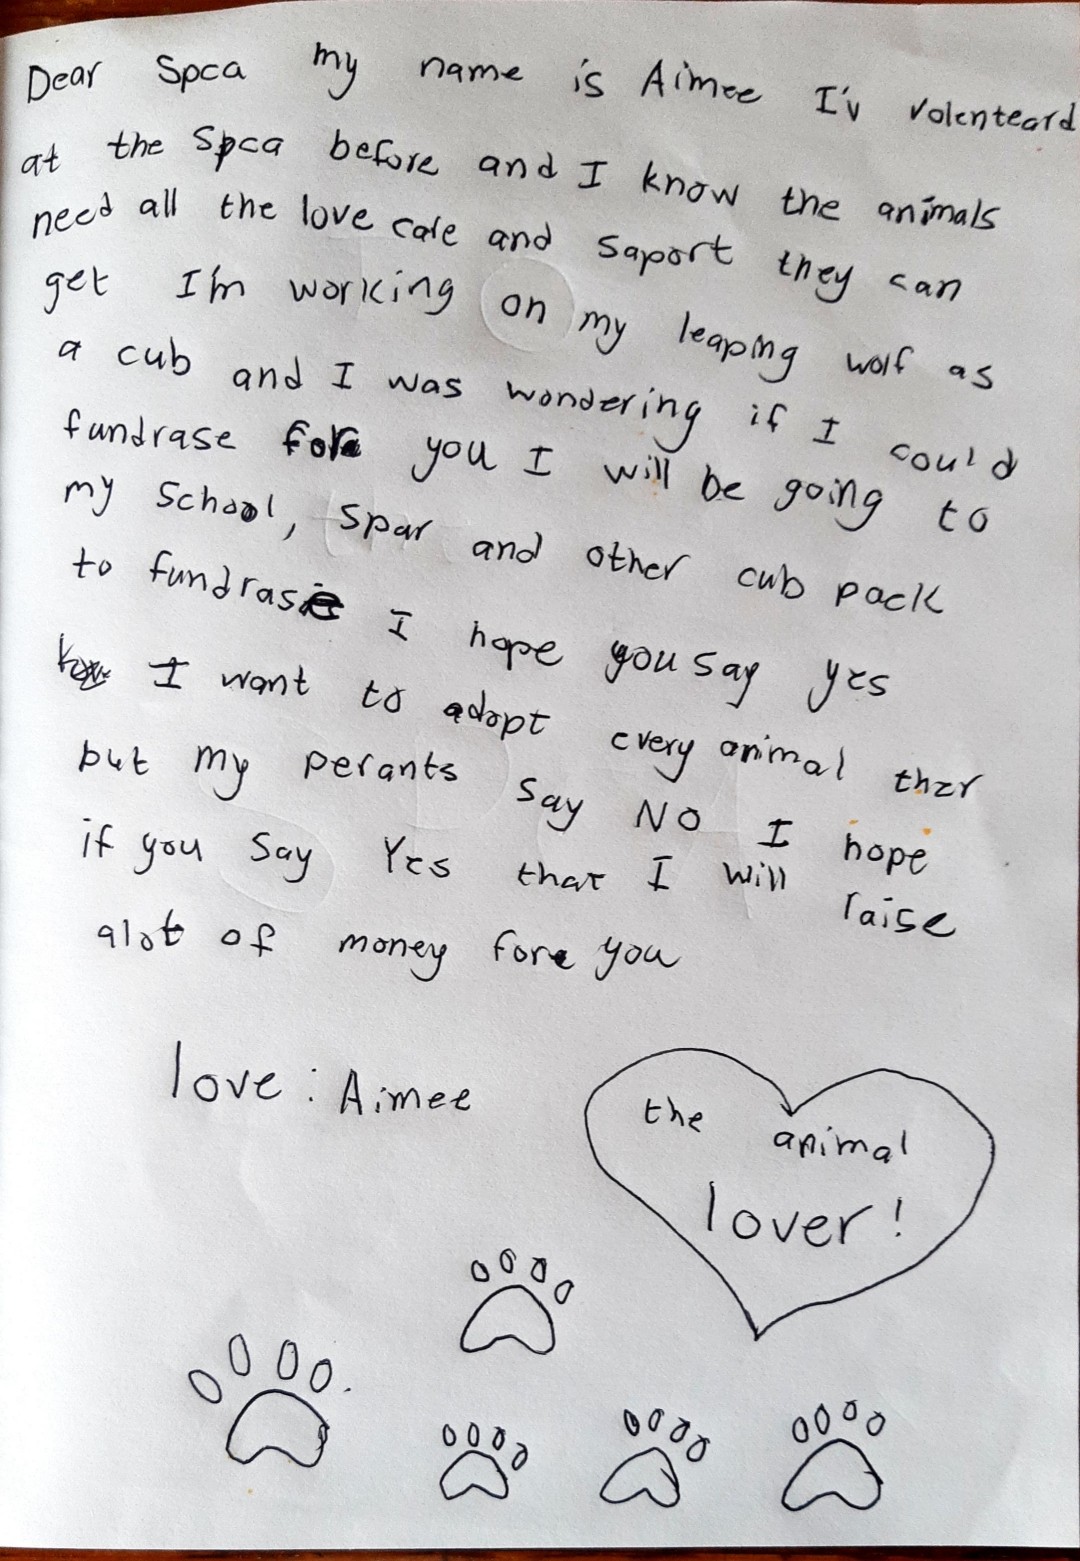 Dear Spca my name is Aimee I'v volenteard
at the Spca before and I know the animals
need all the love care and saport they can
get I'm working on my leaping wolf as
a cub and I was wondering if I could
fundrase fore you I will be going to
my School, spar and other cub pack
to fundrase I hope you say yes
I want to adopt every animal ther
but my perants say NO I hope
if you say Yes that I will raise
alot of money fore you
love: Aimee
the animal
lover!